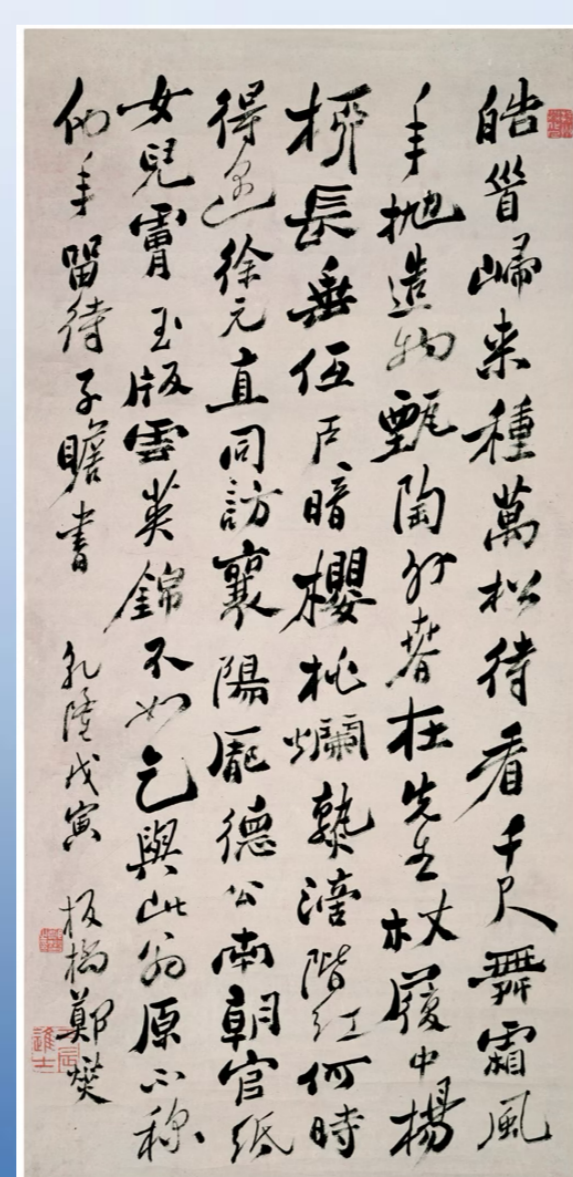 皓首歸来種萬松待看千尺舞霜風
年抛造物甄陶外春在先生杖履中楊
栁長垂低戶暗櫻桃爛熟滴階紅何時
得徐元直同訪襄陽龎德公南朝官紙
女兒膚玉版雲英錦不如乞與此翁原不称
他年留待子瞻書 乹隆戊寅 板橋鄭燮
丙辰進士